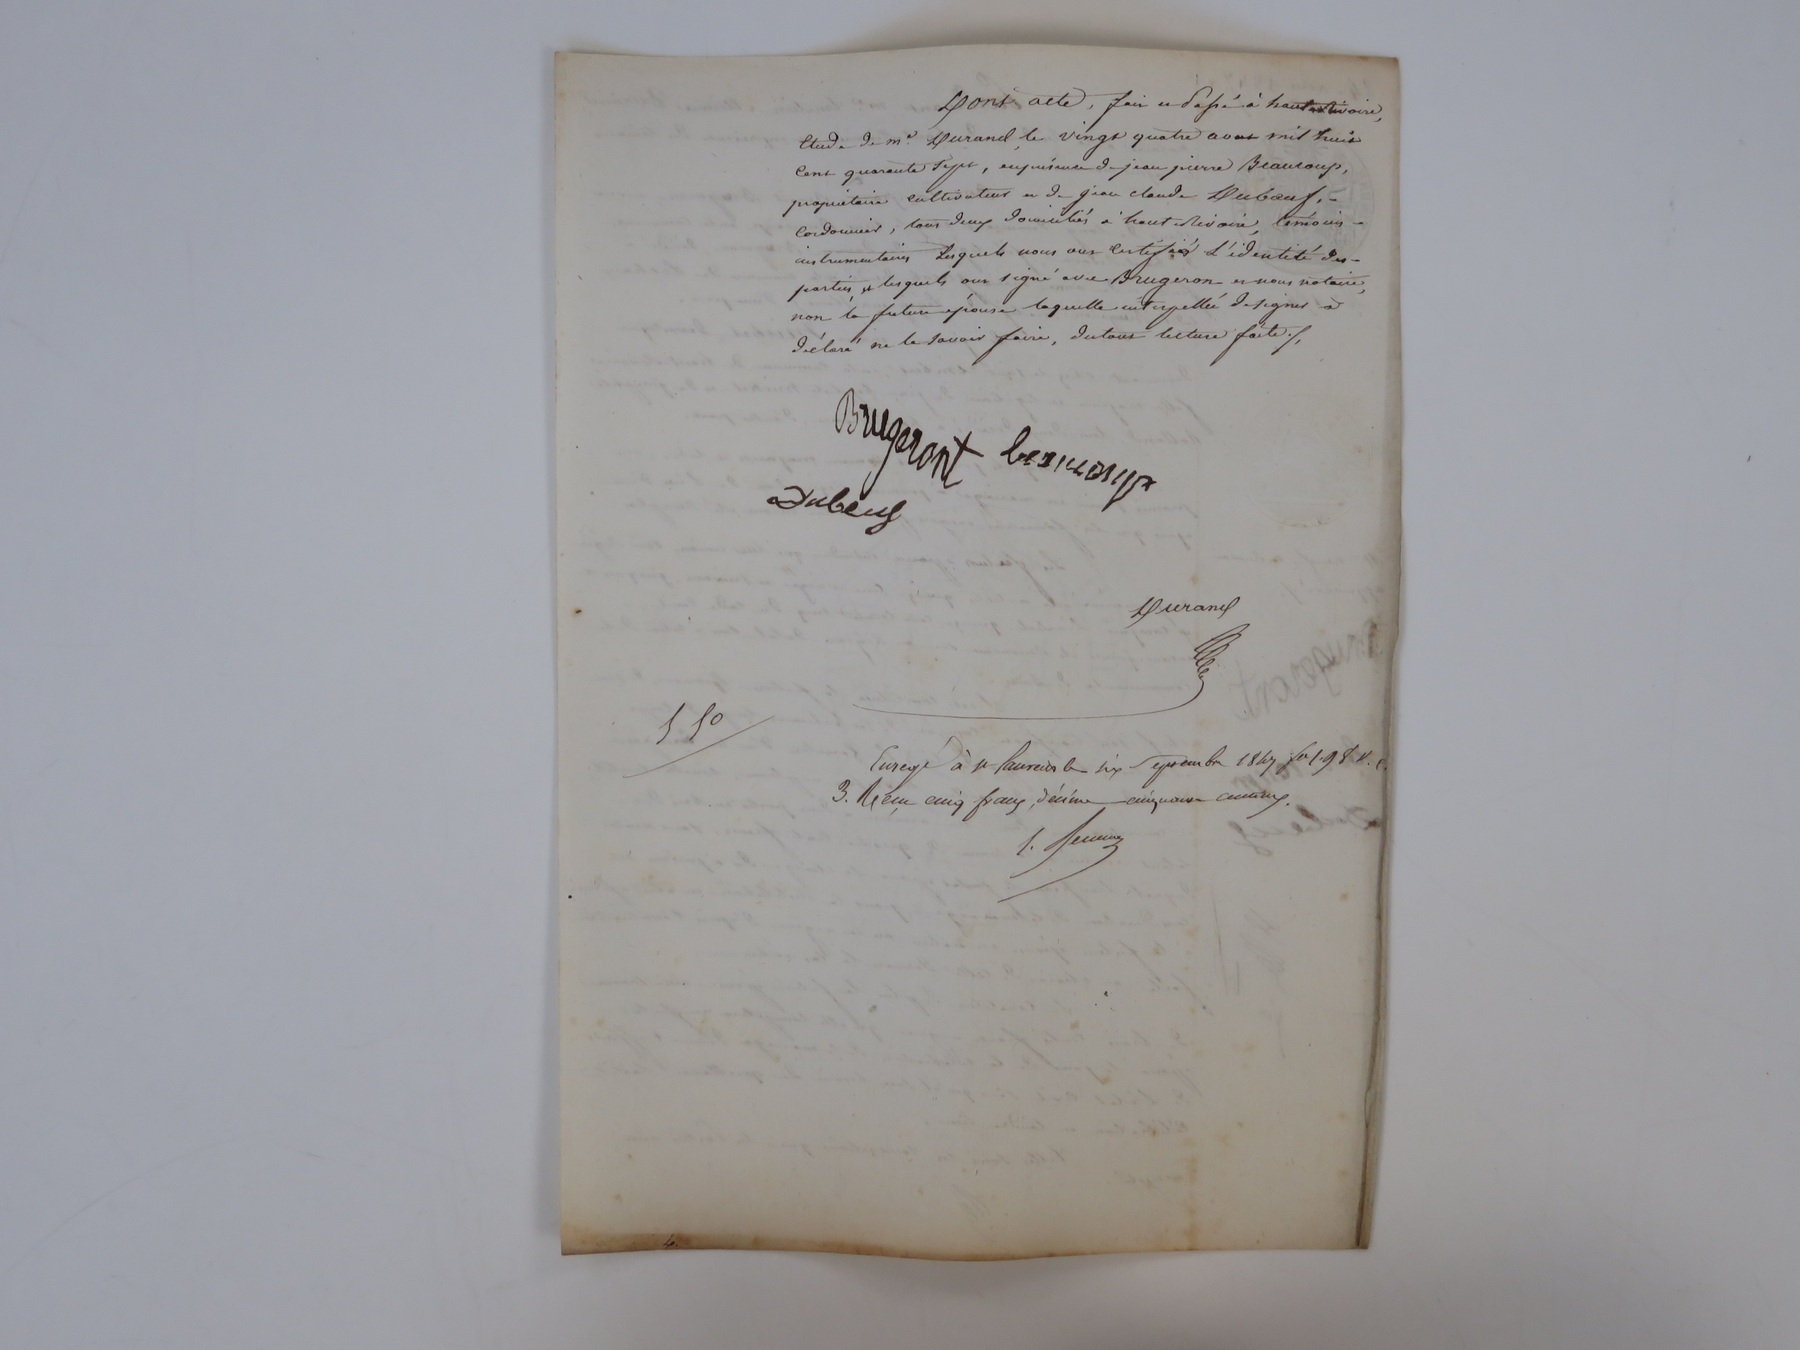 Dont acte, fait et passé à haut-Rivoire,
Etude de me Durand, le vingt quatre aout mil huit
cent quarante sept, en présence de jean pierre Beaucoup,
propriétaire cultivateur et de jean claude Duboeuf,
cordonnier, tous deux domiciliés à haut Rivoire, témoins
instrumentaires lesquels nous ont certifié L'identité des
parties et lesquels ont signé avec Brugeron et nous notaire,
non la future épouse laquelle interpellée de signer a
déclaré ne le savoir faire, du tout lecture faite /.
Brugeront beaucoup
Dubeuf
Durand
5 50
Enregé à st laurent le six Septembre 1847 fol. 98 v. c.
3. Reçu cinq francs, décime cinquante centimes.